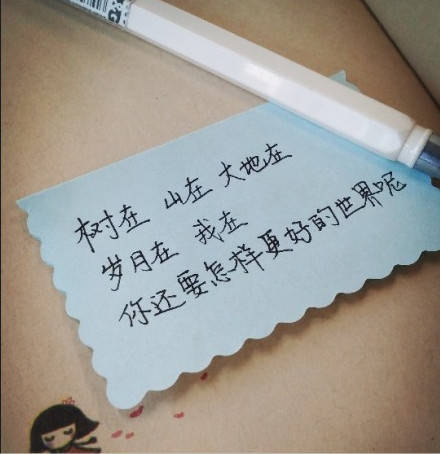 树在 山在 大地在
岁月在 我在
你还要怎样更好的世界呢